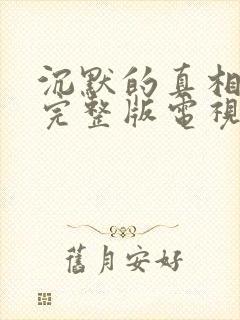 沉默的真相
完整版電視
舊月安好